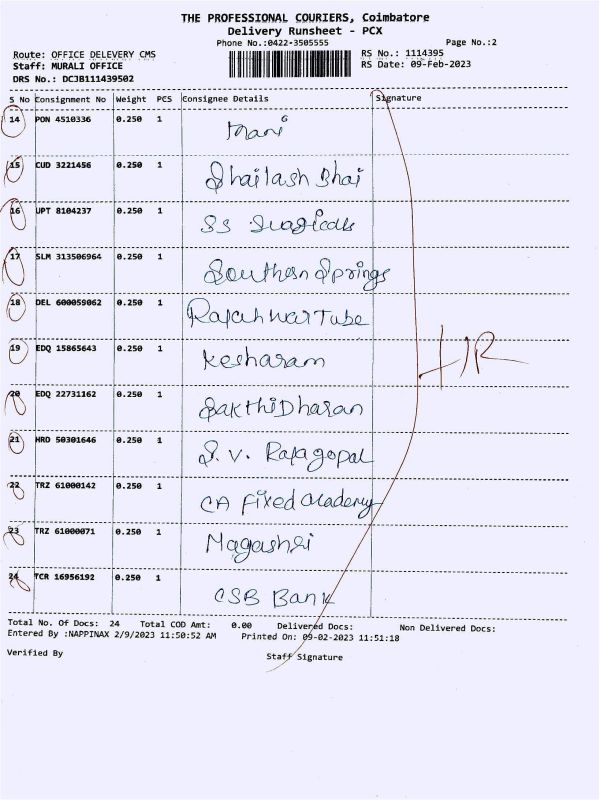 THE PROFESSIONAL COURIERS, Coimbatore
Delivery Runsheet - PCX
Phone No.:0422-3505555 Page No.:2
Route: OFFICE DELEVERY CMS RS No.: 1114395
Staff: MURALI OFFICE RS Date: 09-Feb-2023
DRS No.: DCJB111439502
S No Consignment No Weight PCS Consignee Details Signature
14 PON 4510336 0.250 1 Mani
15 CUD 3221456 0.250 1 Shailash Bhai
16 UPT 8104237 0.250 1 SS Sugicals
17 SLM 313506964 0.250 1 Southern Springs
18 DEL 600059062 0.250 1 Rajah war Tube
19 EDQ 15865643 0.250 1 Kesharam
20 EDQ 22731162 0.250 1 SakthiDharan
21 HRD 50301646 0.250 1 S. V. Rajagopal
22 TRZ 61000142 0.250 1 CA Fixed Academy
23 TRZ 61000071 0.250 1 Magashri
24 TCR 16956192 0.250 1 CSB Bank
Total No. Of Docs: 24 Total COD Amt: 0.00 Delivered Docs: Non Delivered Docs:
Entered By :NAPPINAX 2/9/2023 11:50:52 AM Printed On: 09-02-2023 11:51:18
Verified By Staff Signature